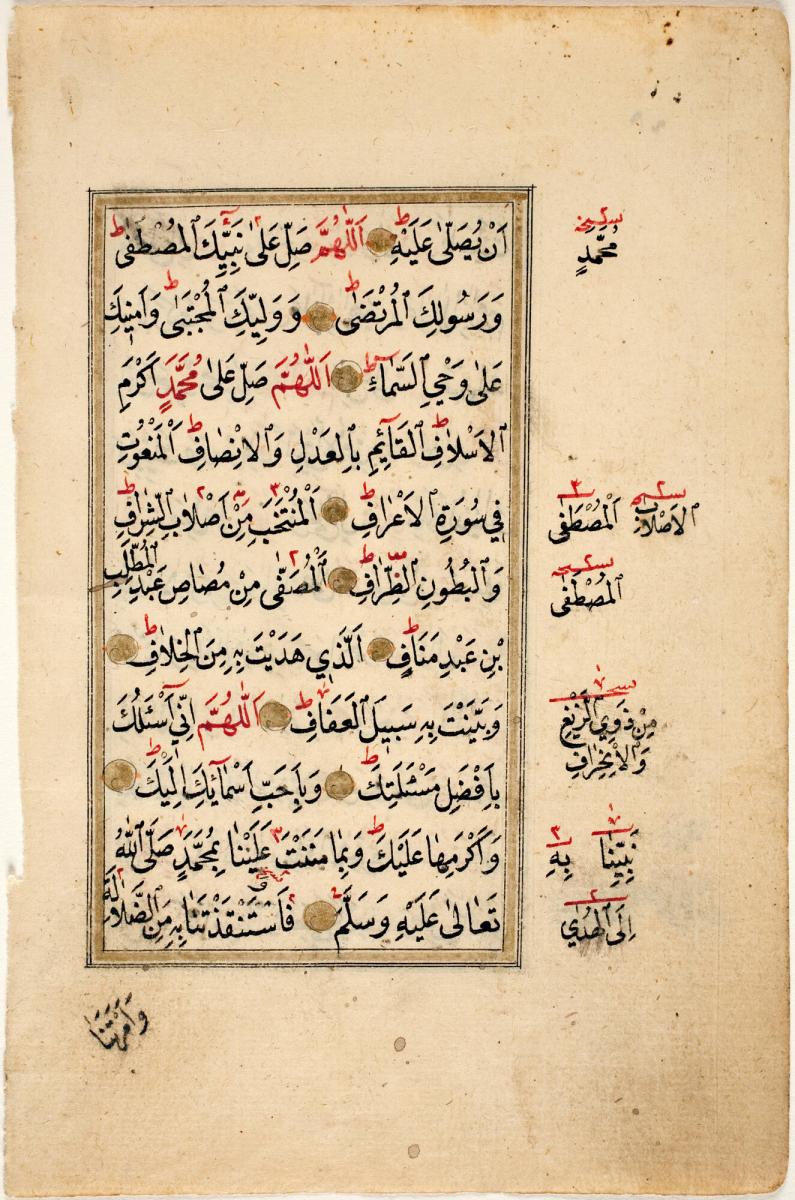 اَنْ يُصَلّٰى عَلَيْهِ ۝ اَللّٰهُمَّ صَلِّ عَلٰى نَبِيِّكَ الْمُصْطَفٰى
وَرَسُولِكَ الْمُرْتَضٰى ۝ وَوَلِيِّكَ الْمُجْتَبٰى وَاَمِينِكَ
عَلٰى وَحْيِ السَّمَاءِ ۝ اَللّٰهُمَّ صَلِّ عَلٰى مُحَمَّدٍ اَكْرَمِ
الْاَسْلَافِ الْقَائِمِ بِالْعَدْلِ وَالْاِنْصَافِ اَلْمَنْعُوتِ
فِي سُورَةِ الْاَعْرَافِ ۝ اَلْمُنْتَخَبِ مِنْ اَصْلَابِ الشِّرَافِ
وَالْبُطُونِ الظِّرَافِ ۝ اَلْمُصَفّٰى مِنْ مُصَاصِ عَبْدِ الْمُطَّلِبِ
بْنِ عَبْدِ مَنَافٍ ۝ اَلَّذِي هَدَيْتَ بِهِ مِنَ الْخِلَافِ ۝
وَبَيَّنْتَ بِهِ سَبِيلَ الْعَفَافِ ۝ اَللّٰهُمَّ اِنِّي اَسْئَلُكَ
بِاَفْضَلِ مَسْئَلَتِكَ ۝ وَبِاَحَبِّ اَسْمَائِكَ اِلَيْكَ ۝
وَاَكْرَمِهَا عَلَيْكَ وَبِمَا مَنَنْتَ عَلَيْنَا بِمُحَمَّدٍ صَلَّى اللّٰهُ
تَعَالٰى عَلَيْهِ وَسَلَّمَ ۝ فَاسْتَنْقَذْتَنَا بِهِ مِنَ الضَّلَالَةِ
مُحَمَّدٍ
الْاَصْلَابِ اَلْمُصْطَفٰى
الْمُصْطَفٰى
مِنْ ذَوِي الزَّيْغِ
وَالْاِنْحِرَافِ
نَبِيِّنَا بِهِ
اِلَى الْهُدٰي
وَاَمَرْتَنَا